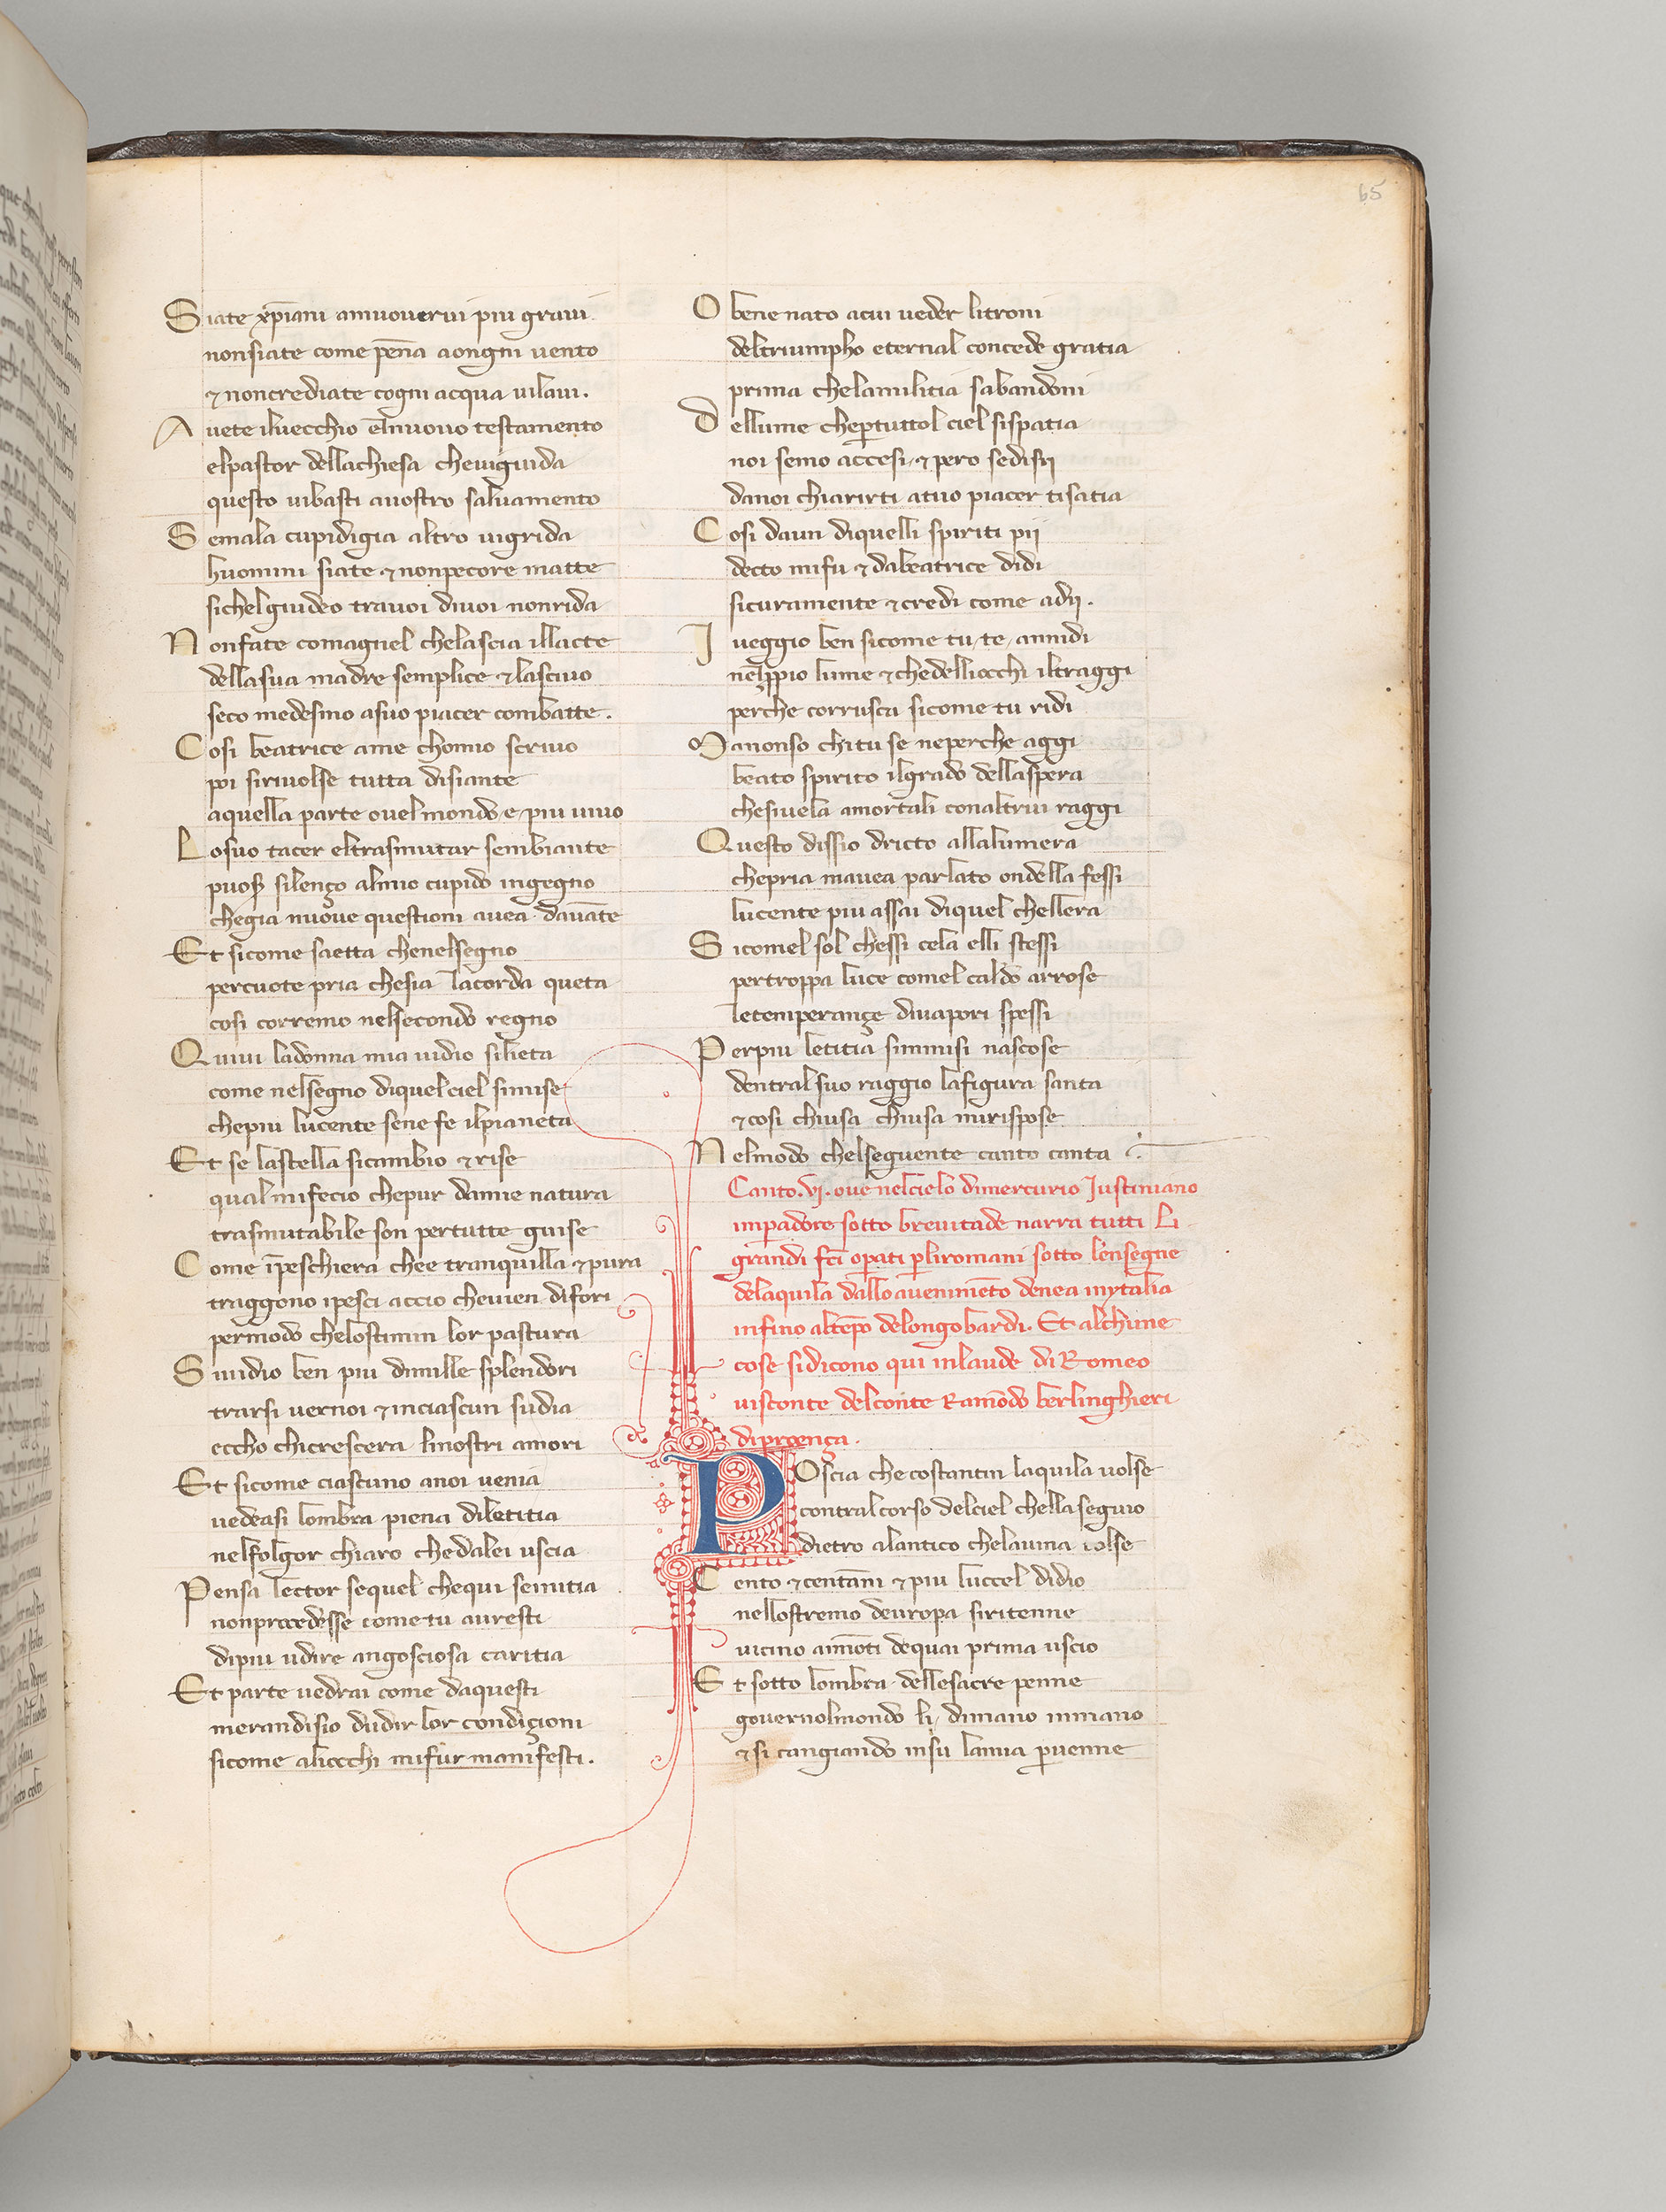 65
Siate xp̄iani amuoverui piu graui
nonsiate come pēna aongni uento
⁊ noncrediate cogni acqua uilaui.
Auete iluecchio el̄nuouo testamento
elpastor dellachiesa cheuiguida
questo uibasti auostro saluamento
Semala cupidigia altro uigrida
huomini siate ⁊ nonpecore matte
sichelguideo trauoi diuoi nonrida
Nonfate comagnel chelascia illacte
dellasua madre semplice ⁊ lasciuo
seco medesmo asuo piacer combatte.
Cosi beatrice ame chomio scriuo
poi siriuolse tutta disiante
aquella parte ouelmondo e piu uiuo
Losuo tacer eltrasmutar sembiante
puosȩ silenço almio cupido ingegno
chegia nuoue questioni auea dauāte
Et sicome saetta chenelsegno
percuote pria chesia lacorda queta
cosi corremo nelsecondo regno
Quiui ladonna mia uidio silieta
come nelsegno diquelciel simise
chepiu lucente sene fe ilpianeta
Et se lastella sicambio ⁊ rise
qual mifecio chepur damie natura
trasmutabile son pertutte guise
Come īpeschiera chee tranquilla ⁊ pura
traggono ipesci accio cheuien difori
permodo chelostimin lor pastura
Siuidio ben piu dimille splendori
trarsi uernoi ⁊ inciascun sudia
eccho chicrescera linostri amori
Et sicome ciascuno anoi uenia
uedeasi lombra piena diletitia
nelfolgor chiaro chedalei uscia
Pensa lector sequel chequi seinitia
nonprocedesse come tu auresti
dipiu udire angosciosa caritia
Et parte uedrai come daquesti
merandisio dudir lor condiçioni
sicome aliocchi mifur manifesti.
O bene nato acui ueder litroni
deltriumpho eternal concede gratia
prima chelamilitia sabandoni
Dellume chepertuttol ciel sispatia
noi semo accesi ⁊ pero sedisij
danoi chiarirti atuo piacer tisatia
Cosi daun diquelli spiriti pij
decto mifu ⁊ dabeatrice didi
sicuramente ⁊ credi come adij.
I ueggio ben sicome tu te annidi
nelp̄pio lume ⁊ chedelliocchi iltraggi
perche corrusca sicome tu ridi
Manonso chitu se neperche aggi
beato spirito ilgrado dellaspera
chesiuela amortali conaltrui raggi
Questo dissio dricto allalumera
chepria mauea parlato ondella fessi
lucente piu assai diquel chellera
Sicomel sol chessi cela elli stessi
pertroppa luce comel caldo arrose
letemperançe diuapori spessi
Perpiu letitia simmisi nascose
dentralsuo raggio lafigura santa
⁊ cosi chiusa chiusa mirispose
Nelmodo chelseguente canto canta
Canto .vj. oue nelcielo dimercurio Iustiniano
imꝑadore sotto breuitade narra tutti li
grandi fc̄i oꝑati ꝑliromani sotto lensegne
delaquila dallo auenimēto denea inytalia
infino altēpo delongobardi. Et alchune
cose sidicono qui inlaude di Romeo
uisconte delconte Ramōdo berlinghieri
diproença.
Poscia checostantin laquila uolse
contralcorso delciel chellaseguio
dietro alantico chelauina tolse
Cento ⁊ centāni ⁊ piu luccel didio
nellostremo deuropa siritenne
uicino amōti dequai prima uscio
Et sotto lombra dellesacre penne
gouernolmondo li dimano inmano
⁊ si cangiando insu lamia ꝑuenne